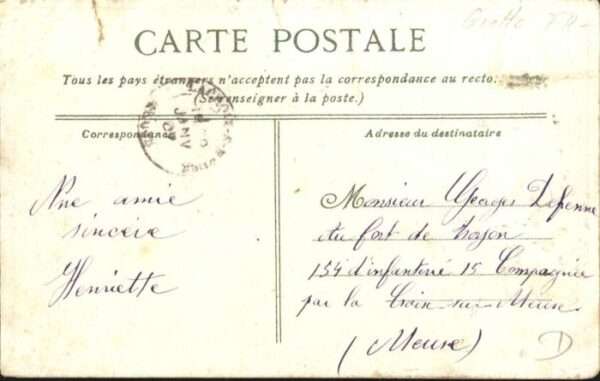 Grotte
CARTE POSTALE
Tous les pays étrangers n'acceptent pas la correspondance au recto.
(Se renseigner à la poste.)
Correspondance
Adresse du destinataire
JANV
07
Une amie
sincère
Henriette
Monsieur Georges Defenne
du fort de troyon
154 d'infanterie 15 Compagnie
par la Croix sur Meuse
(Meuse)
D